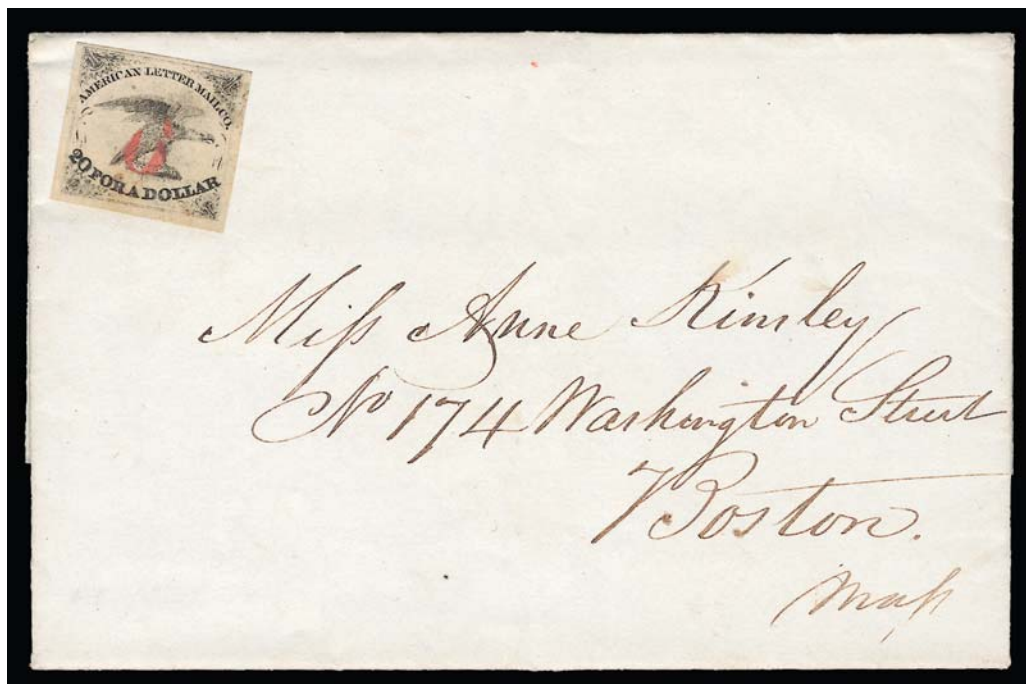 AMERICAN LETTER MAIL CO.
20 FOR A DOLLAR
Miſs Anne Kimley
No 174 Washington Street
Boston.
Maſs